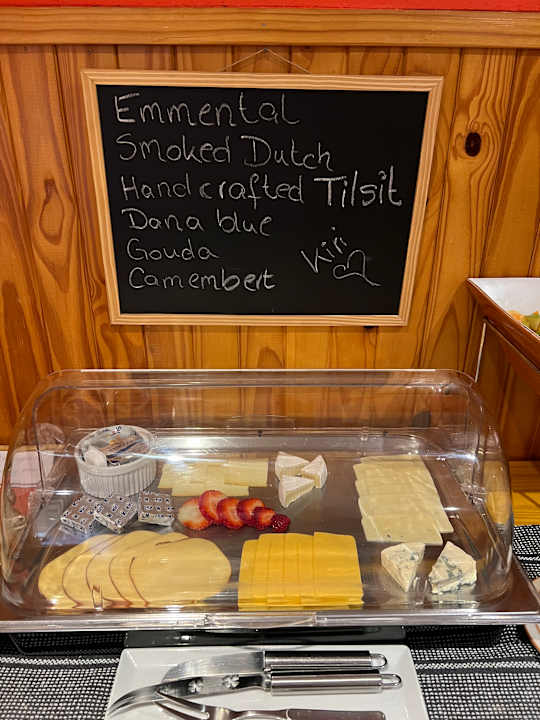 Emmental
Smoked Dutch
Handcrafted Tilsit
Dana blue
Gouda
Kiri
Camembert